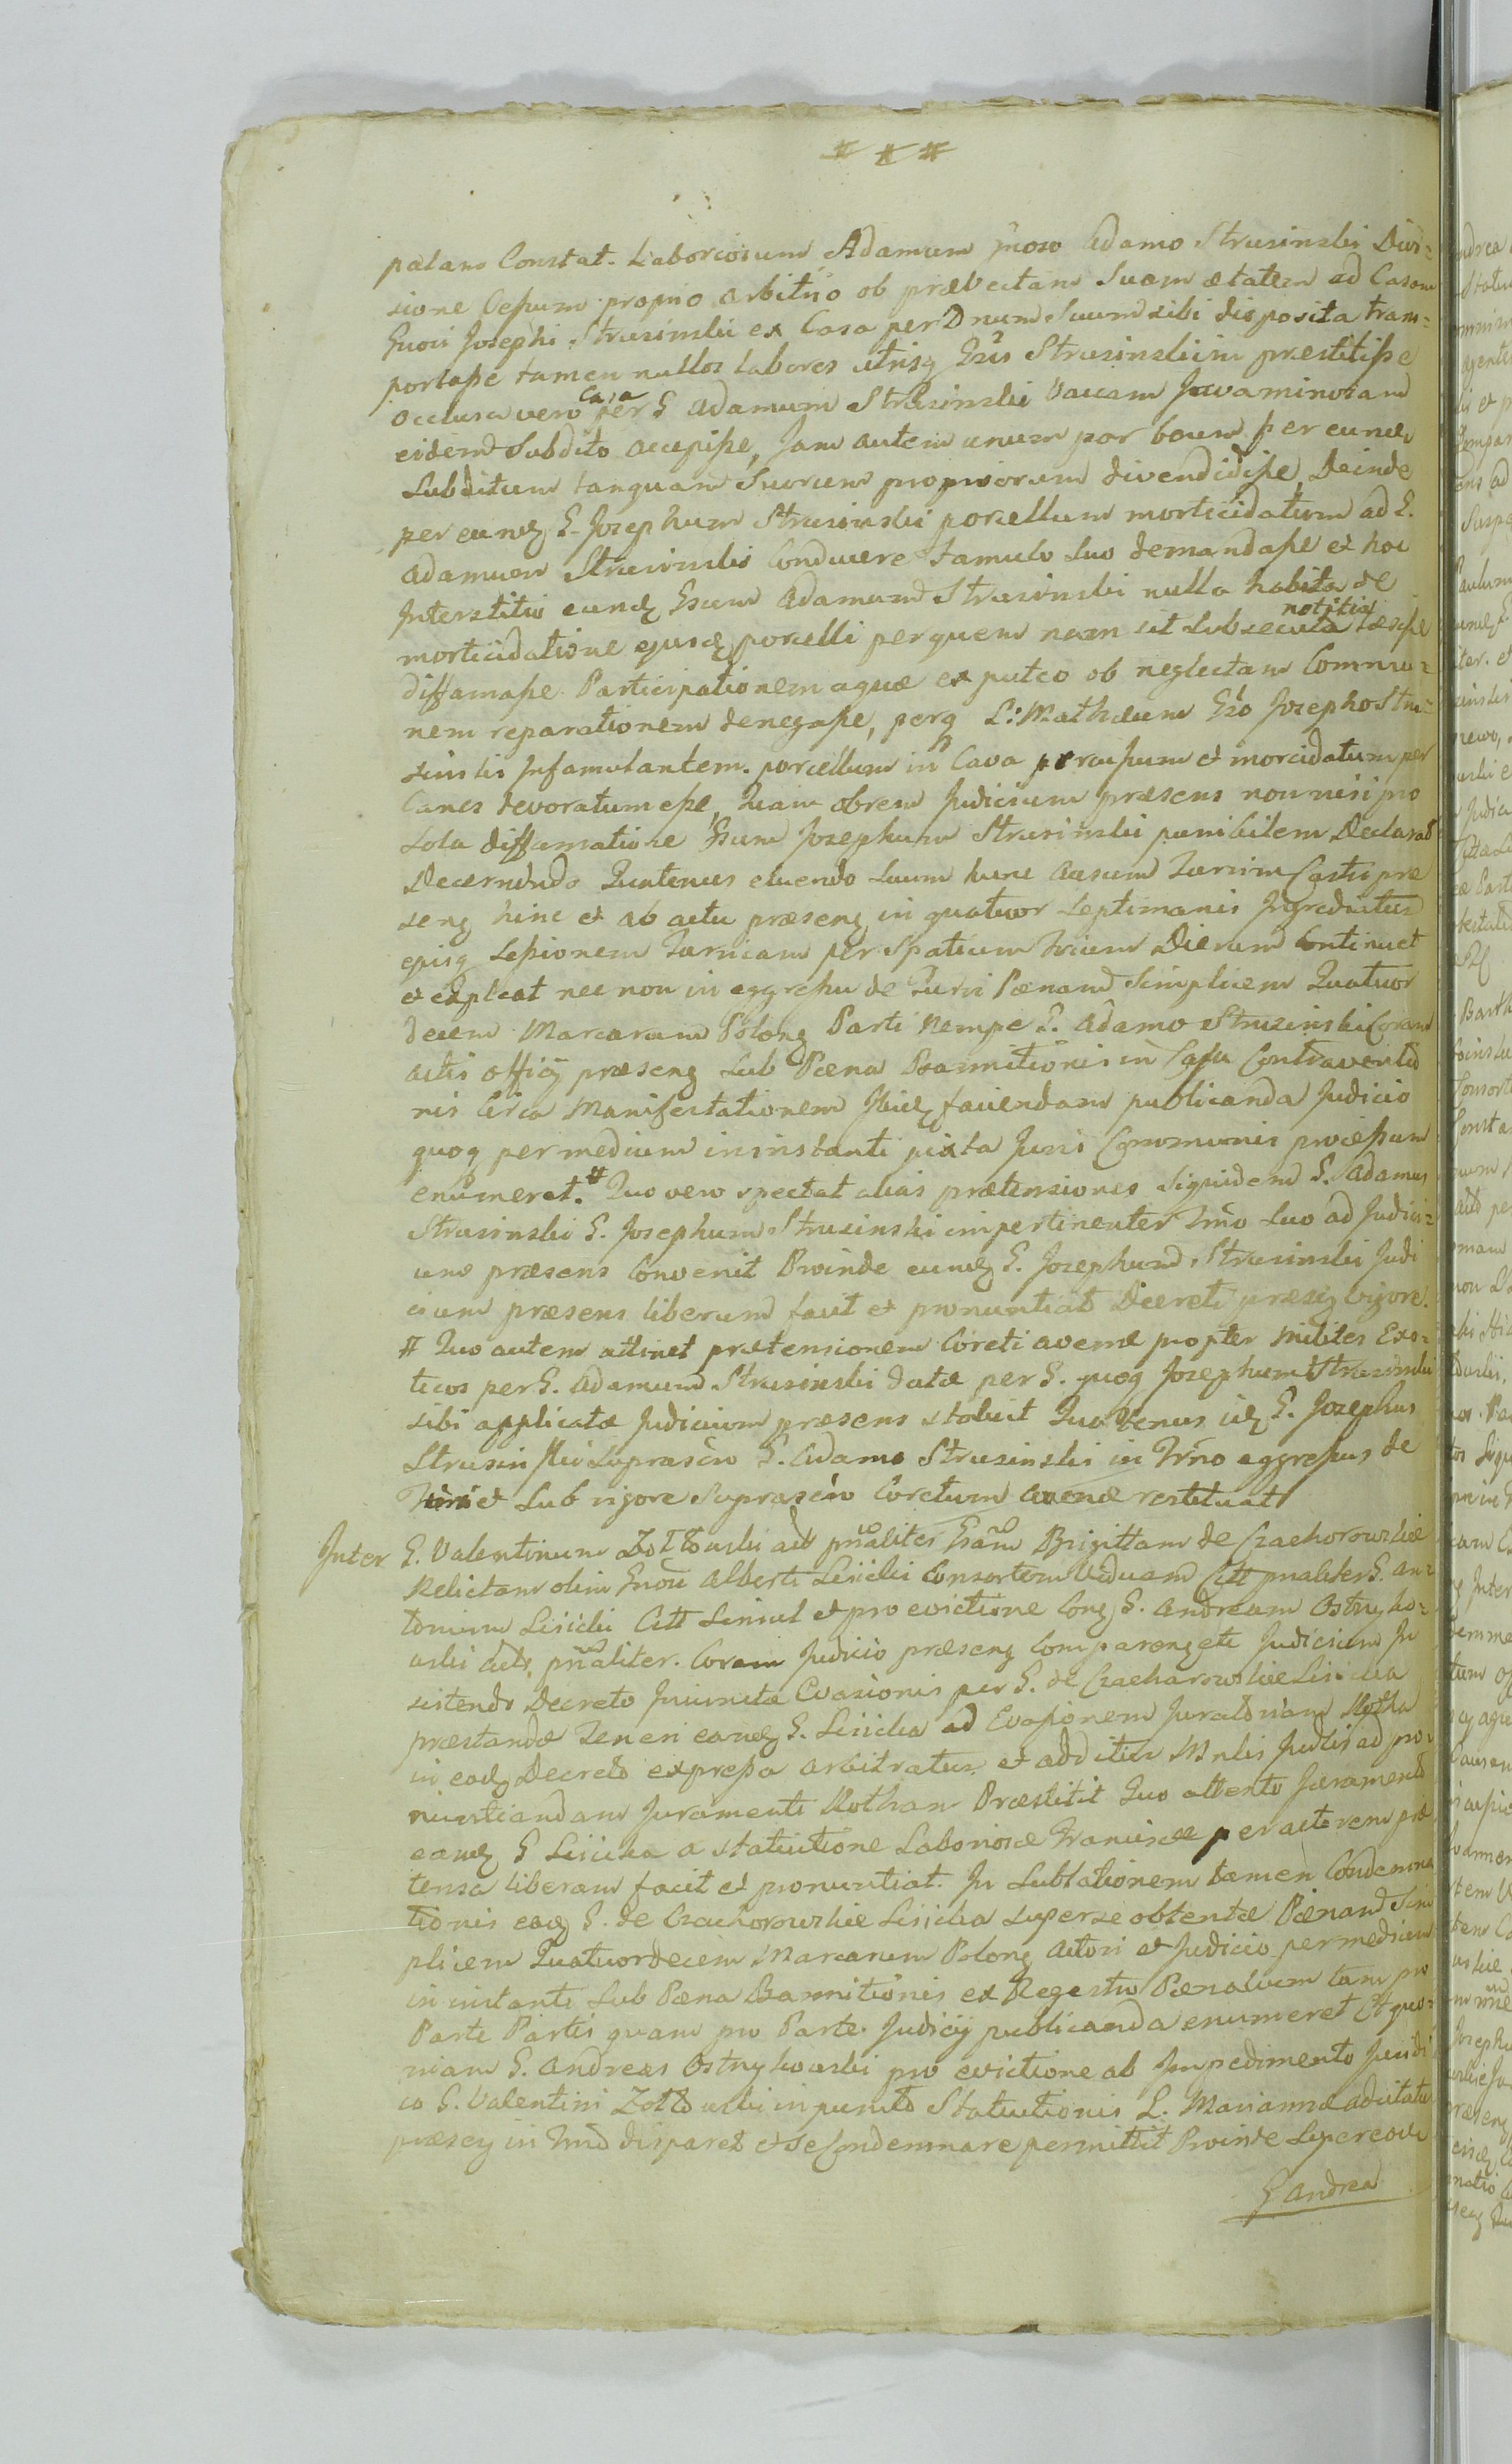 # # #
palam Constat. Laboriosum Adamum Adamo Strusinski Divi=
sione Cessum proprio arbitrio ob prævectam Suam ætatem ad Casam
Gnosi Josephi Strusinski ex Casa per Dnum Suum sibi disposita trans=
portasse tamen nullos labores utrisq Strusinskiim præstitisse
Occlusa vero Casa per G Adamum Strusinski Vaccam Juvaminosam
eidem Subdito accepisse, Jam autem unum par boum per eundz
Subditum tanquam Suorum propriorum divendidisse, Deinde
per eundz G. Josephum Strusinski porcellum morticidatum ad G.
Adamum Strusinski Conducere famulo Suo demandasse et hoc
Interstitio eundz Adamum Strusinski nulla habita de
morticidatione ejusdz porcelli per quem nam sit Subsecuta notitia
diffamasse Participationem aquæ ex puteo ob neglectam Commu=
nem reparationem denegasse, perq L: Mathæum Gso Josepho Stru=
sinski Infamulantem porcellum in Cava percussum et morcidatum per
Canes devoratum esse, Quam obrem Judicium præsens nonnisi pro
Sola diffamatione Gsum Josephum Strusinski punibilem Declarat
Decernendo Quatenus eluendo Suum hunc Ausum Turrim Castri præ
seng hinc et ab actu præseng in quatuor Septimanis Ingrediatur
ejusq Sessionem Turricam per Spatium trium Dierum Continuet
et expleat nec non in eggressu de Turri Pænam Simplicem Quatuor
decem Marcarum Polong Parti Nempe G. Adamo Strusinski Coram
actis officij præseng Sub Pæna Bannitionis in Casu Contraventio
nis Circa Manifestationem Ibidz faciendam publicanda Judicio
quoq per medium in instanti juxta Juris Communis processum
enumeret. # Quo vero spectat alias prætensiones Siquidem G. Adamus
Strusinski G. Josephum Strusinski impertinenter Trno Suo ad Judici=
um præsens Convenit Proinde eundz G. Josephum Strusinski Judi
cium præsens liberum facit et pronuntiat Decreti præseng vigore.
# Quo autem attinet prætensionem Coreti avenæ propter Milites Exo=
ticos per G. Adamum Strusinski datæ per G. quoq Josephum Strusinski
sibi applicatæ Judicium præsens stabuit Quatenus idz G. Josephus
Strusinski Suprascro G. Adamo Strusinski in Trno eggressus de
Turri et Sub rigore Suprascro Coretum avenæ restituat
Inter G. Valentinum Zołtowski act pnaliter Gsam Brigittam de Czachorowskie
Relictam olim Gnosi Alberti Lisicki Consortem Viduam Citt pnaliter G. An=
tonium Lisicki Citt Simul et pro evictione Cong G. Andream Ostrykow=
ski act. pnaliter. Coram Judicio præseng Comparengete Judicium In
sistendo Decreto Inierectæ Evasionis per G. de Czacharowskie Lisicka
præstandæ Teneri eandz G. Lisicka ad Evasionem Juratoriam Rotha
in eodz Decreto expressa arbitratur et additur Mnlis Judlis ad pro=
nuntiandam Juramenti Rotham Præstitit Quo attento Juramento
eandz G Lisicka a statuitione Laboriosæ Franciscæ per actorem præ
tensa liberam facit et pronuntiat. In Sublationem tamen Condemna
tionis eadz G. de Czachorowskie Lisicka super se obtentæ Pænam Sim
plicem Quatuordecem Marcarum Polong Actori et Judicio per medium
in instanti Sub Pæna Bannitionis ex Regestro Pænalium tam pro
Parte Partis quam pro Parte Judicij publicanda enumeret Et quo=
niam G. Andreas Ostrykowski pro evictione ab Impedimento Juridi
co G. Valentini Zołtowski in puncto Statuitionis L. Mariannæ adcitatus
præseng in Trno disparet et se Condemnare permittit Proinde Super eodz
G Andrea